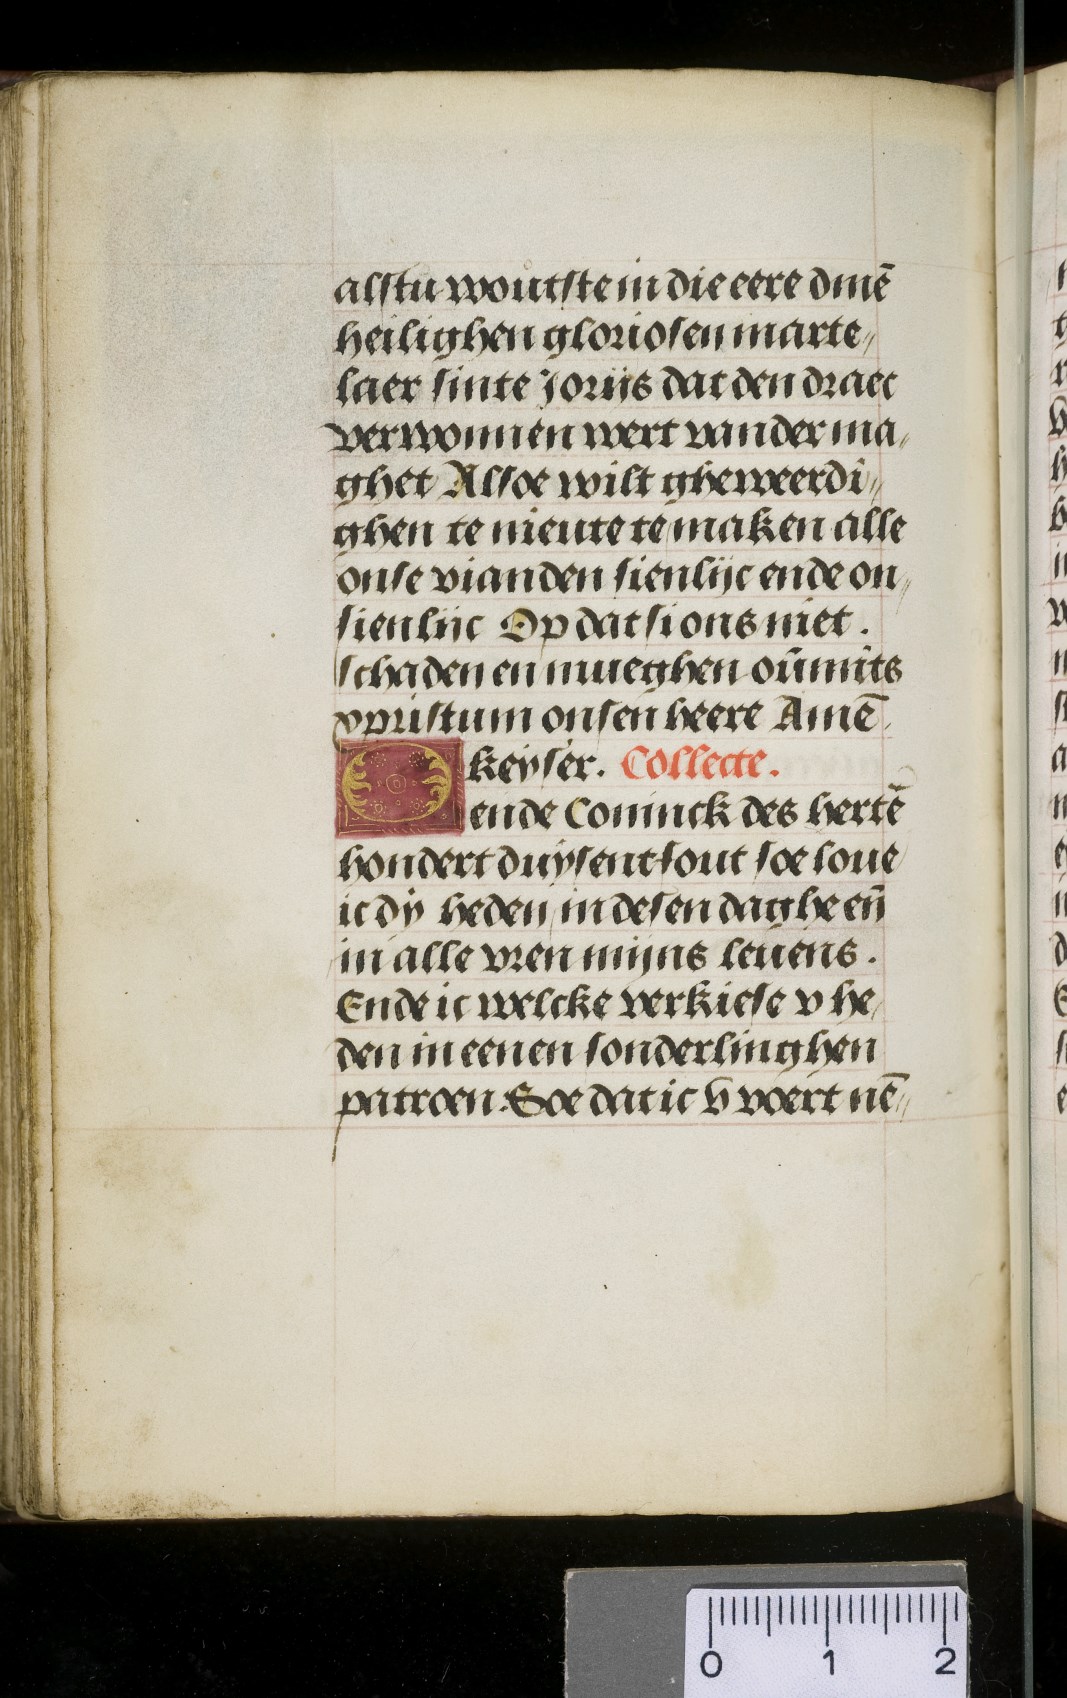 alstu woutste in die eere dinē
heilighen gloriosen marte„
laer sinte Joriis dat den draec
verwonnen wert vander ma„
ghet Alsoe wilt gheweerdi„
ghen te nieute te maken alle
onse vianden sienlijc ende on„
sienlijc Op dat si ons niet .
schaden en mueghen oūmits
xpristum onsen heere Amē.
O keyser. Collecte.
ende Coninck des hertē
hondert duysent fout soe loue
ic dy heden in desen daghe en̄
in alle vren mijns leuens .
Ende ic welcke verkiese v he„
den in eenen sonderlinghen
patroen: Soe dat ic v voert nē„
0 1 2